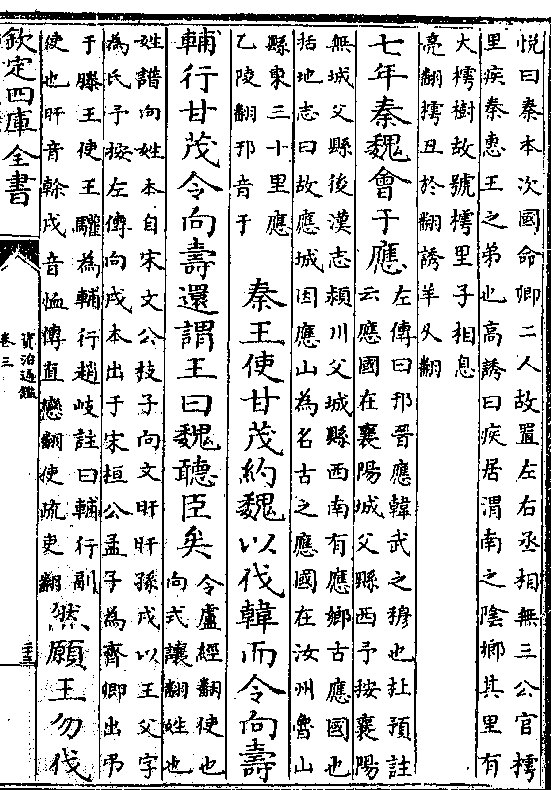 悅曰秦本次國命卿二人故置左右丞相無三公官樗
里疾秦惠王之弟也高誘曰疾居渭南之陰鄉其里有
大樗樹故號樗里子相息
亮翻樗丑於翻誘羊久翻
七年秦魏會于應
左傳曰邘晉應韓武之穆也杜預註
云應國在襄陽城父縣西予按襄陽
無城父縣後漢志潁川父城縣西南有應鄉古應國也
括地志曰故應城因應山為名古之應國在汝州魯山
縣東三十里應
乙陵翻邘音于
秦王使甘茂約魏以伐韓而令向壽
輔行甘茂令向壽還謂王曰魏聽臣矣
令盧經翻使也
向式讓翻姓也
姓譜向姓本自宋文公枝子向文旰旰孫戌以王父字
為氏予按左傳向戌本出于宋桓公孟子為齊卿出弔
于滕王使王驩為輔行趙岐註曰輔行副
使也旰音榦戌音恤傳直戀翻使疏吏翻
然願王勿伐
欽定四庫全書
資治通鑑
卷三